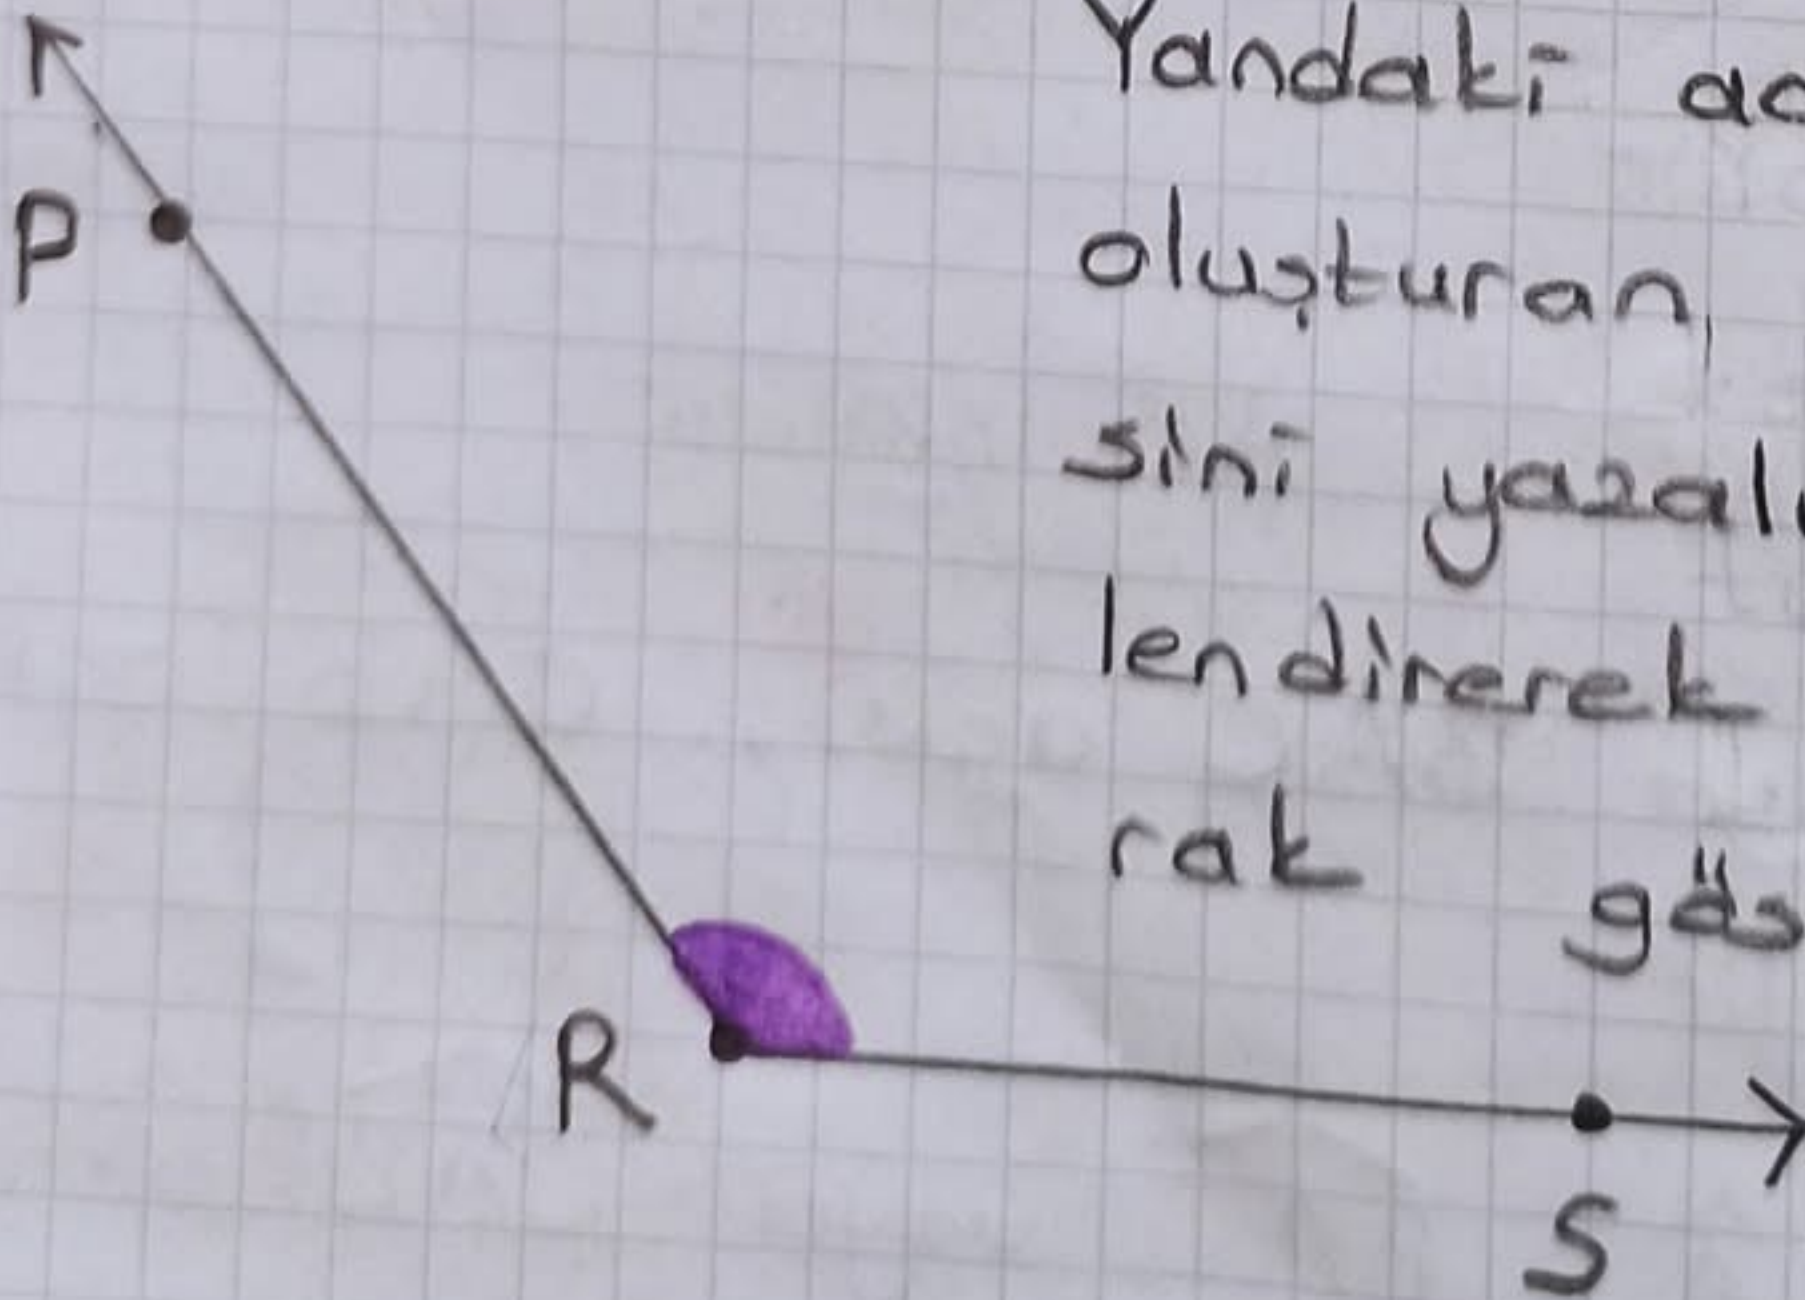 Yandaki
P
oluşturan,
sini yazal
lendirerek
rak gös
R
S